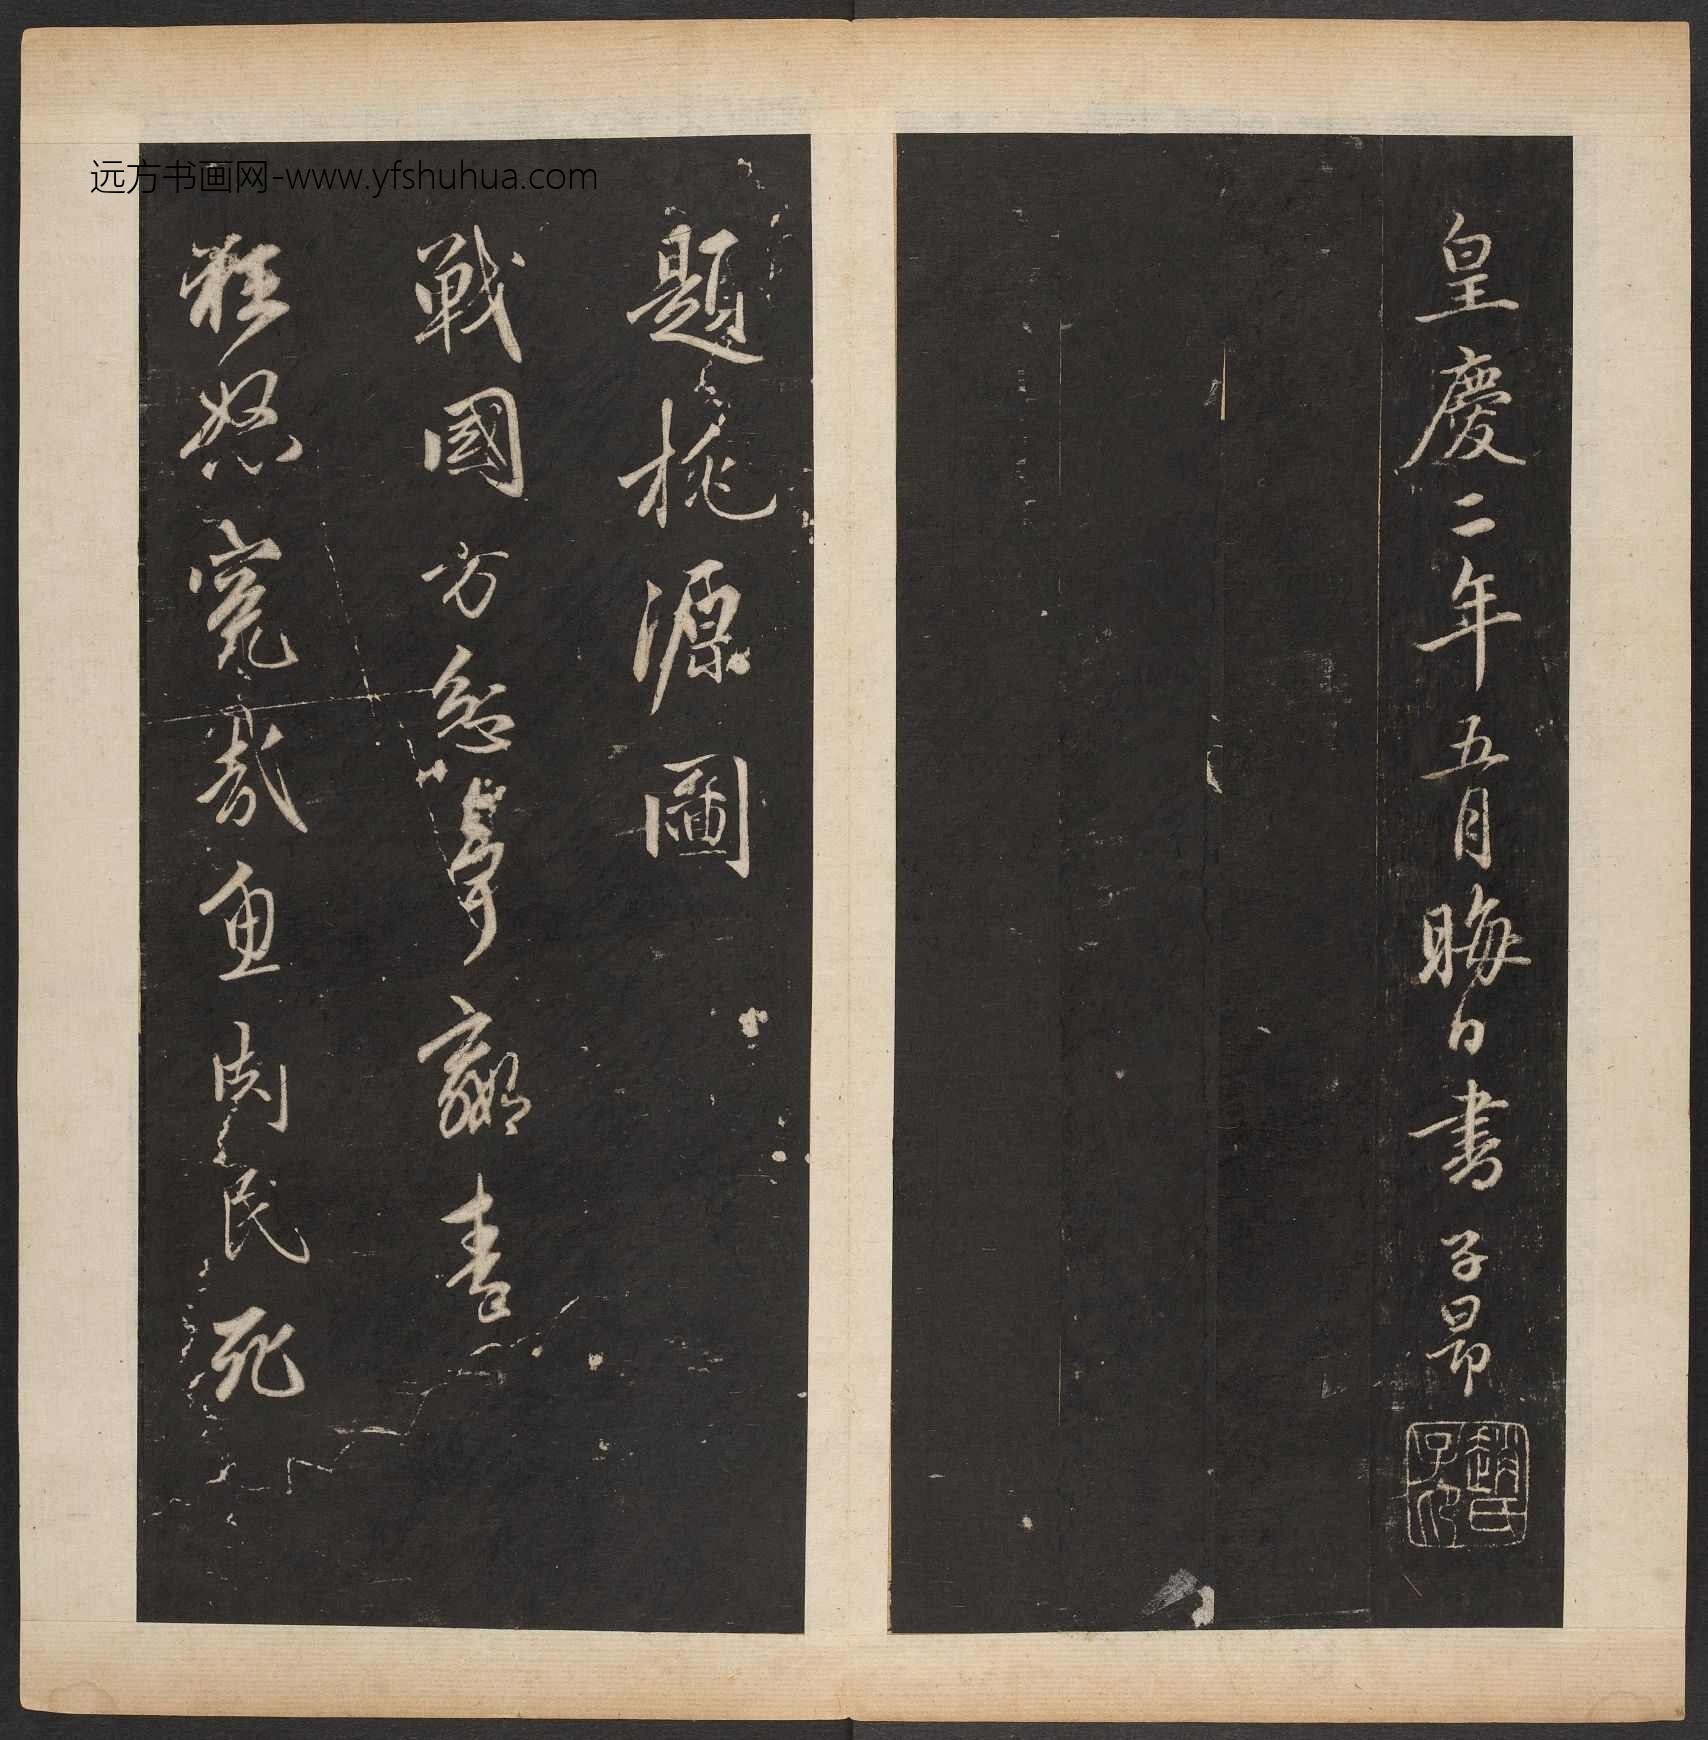 皇慶二年五月晦日書 子昂
趙氏子昂
題桃源圖
戰國方忿爭嬴秦
狂怒寃哉魚肉民死
远方书画网-www.yfshuhua.com